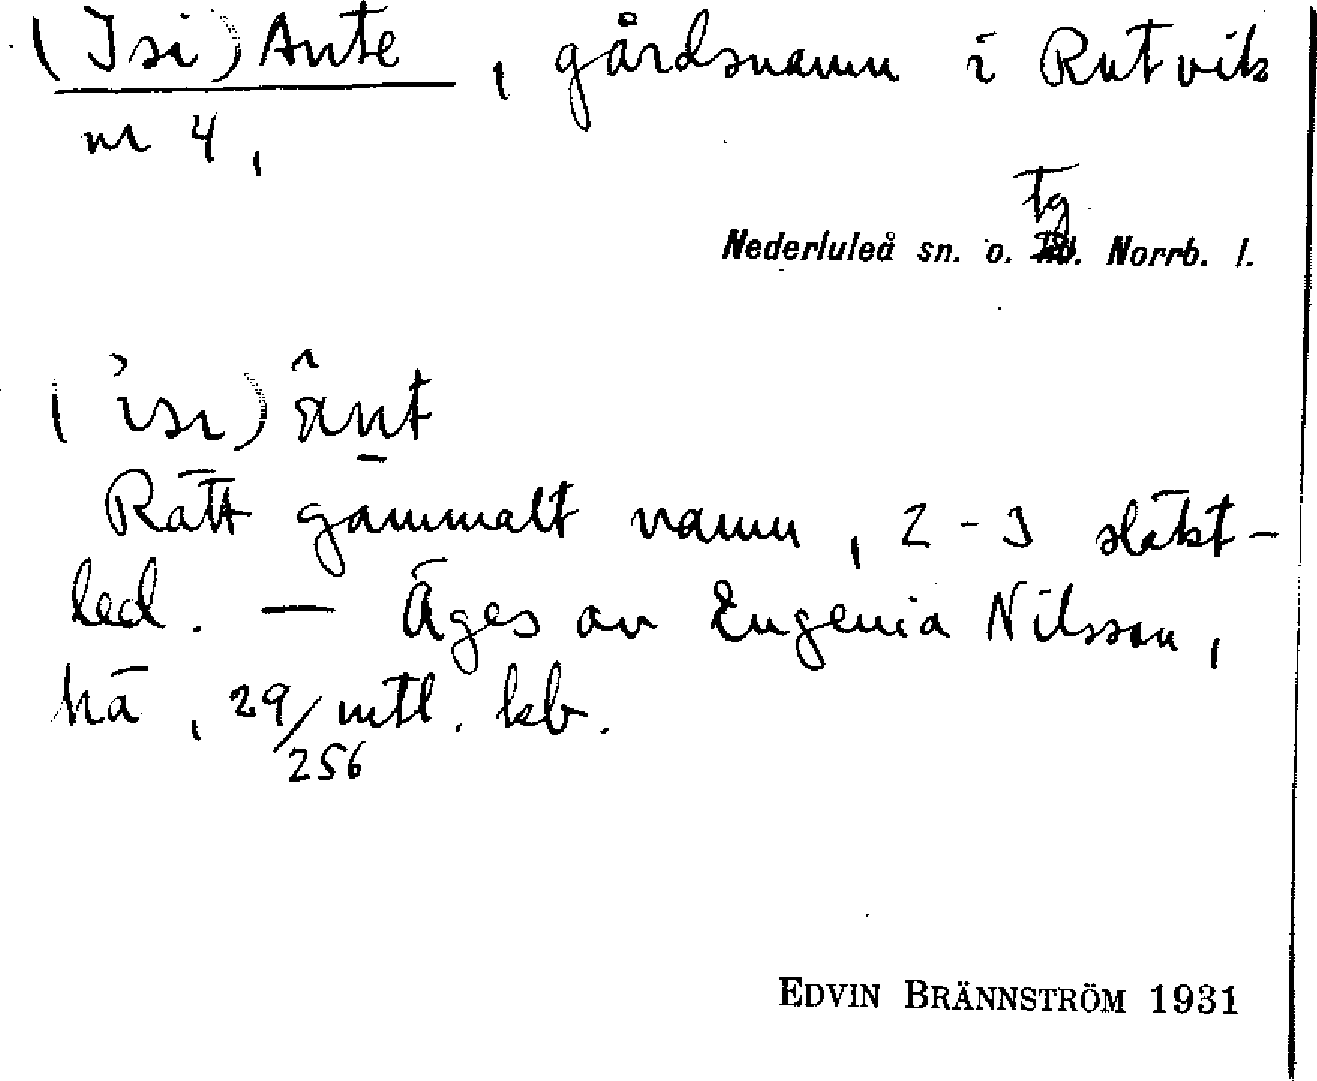 (Isi) Ante, gårdsnamn i Rutvik
nr 4,
tg
Nederluleå sn. o. . Norrb. l.
(ˈisi) ânt
Rätt gammalt namn, 2-3 släkt-
led. — Äges av Eugenia Nilsson,
hä, 29/256 mtl. kb.
EDVIN BRÄNNSTRÖM 1931